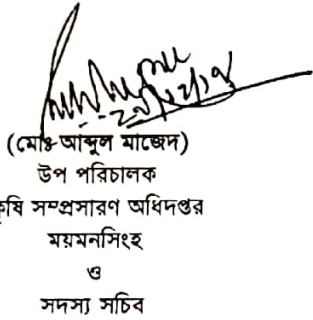 (মোঃ আব্দুল মাজেদ)
উপ পরিচালক
কৃষি সম্প্রসারণ অধিদপ্তর
ময়মনসিংহ
ও
সদস্য সচিব